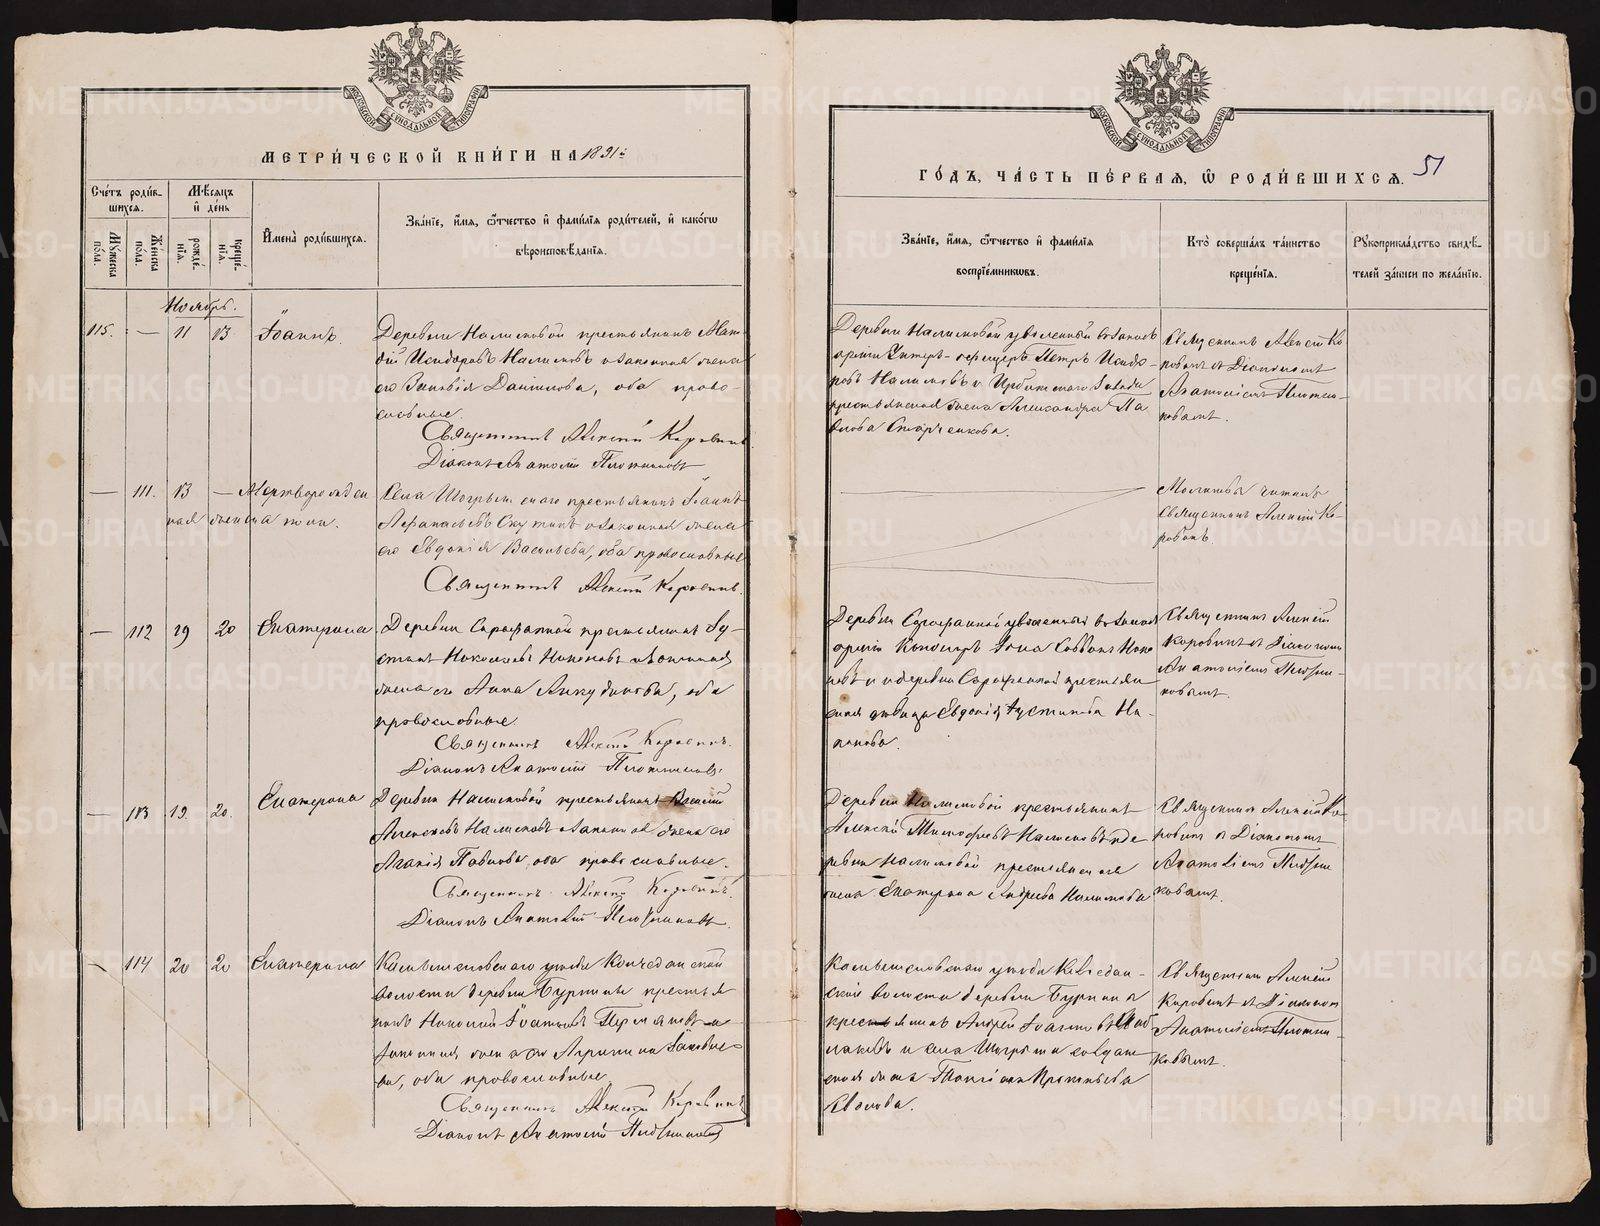 МОСКОВСКОЙ СѴНОДАЛЬНОЙ ТИПОГРАФІИ
МЕТРИ́ЧЕСКОЙ КНИ́ГИ НА 1891й
Сче́тъ роди́в-
шихся.
Мѣ́сяцъ
и҆ де́нь
Му́жеска
по́ла.
Же́нска
по́ла.
рожде́-
нїѧ.
креще́-
нїѧ.
И҆мена̀ роди́вшихся.
Зва́нїе, и҆́мѧ, ѻ҆́тчество и҆ фами́лїѧ роди́телей, и҆ како́гѡ
вѣроисповѣ́данїѧ.
Ноябрь.
115. — 11 13 Іоаннъ.
Деревни Налимовой крестьянинъ
Исидоровъ Налимовъ и законная жена
его Зиновія Данилова, оба право-
славные.
Священникъ Алексій Коровинъ
Діаконъ Анатолій Плотниковъ
— 111. 13 — Мертворожден
ная женска пола.
Села крестьянинъ Іоаннъ
и законная жена
его Евдокія Васильева, оба православные
Священникъ Алексій Коровинъ.
— 112 19 20 Екатерина
Деревни Сарафанной крестьянинъ Іу-
стинъ Николаевъ и законная
жена его Анна Анкудинова, оба
православные.
Священникъ Алексій Коровинъ.
Діаконъ Анатолій Плотниковъ.
— 113 19. 20. Екатерина
Деревни Налимовой крестьянинъ Алексій
Алексѣевъ Налимовъ и законная жена его
Агапія Павлова, оба православные.
Священникъ Алексій Коровинъ.
Діаконъ Анатолій Плотниковъ.
— 114 20 20 Екатерина
Камышловскаго уѣзда
волости деревни Бурнины крестья
нинъ Николай Іоанновъ Пермяковъ и
законная жена его Агрипина Іаковле-
ва, оба православные
Священникъ Алексій Коровинъ
Діаконъ Анатолій Плотниковъ
МОСКОВСКОЙ СѴНОДАЛЬНОЙ ТИПОГРАФІИ
ГО́ДЪ, ЧА́СТЬ ПЕ́РВАЯ, Ѡ҆ РОДИ́ВШИХСЯ. 51
Зва́нїе, и҆́мѧ, ѻ҆́тчество и҆ фами́лїѧ
воспрїе́мникѡвъ.
Кто̀ соверша́лъ та́инство
креще́нїѧ.
Рꙋкоприкла́дство свидѣ́-
телей за́писи по жела́нїю.
Деревни Налимовой уволенный въ запасъ
арміи Унтеръ-офицеръ Петръ Исидо
ровъ Налимовъ и Ирбитскаго Завода
крестьянская жена Александра Па
влова Старченкова.
Священникъ Алексій Ко
ровинъ съ Діакономъ
Анатоліемъ Плотни-
ковымъ.
Молитвы читалъ
священникъ Алексій Ко-
ровинъ.
Деревни Сарафанной уволенный въ запасъ
арміи
и деревни Сарафанной крестьян
ская дѣвица Евдокія Іустинова
Священникъ Алексій
Коровинъ съ Діакономъ
Анатоліемъ Плотни-
ковымъ.
Деревни Налимовой крестьянинъ
Алексій Тимофеевъ Налимовъ и де
ревни Налимовой крестьянская
жена Екатерина Андреева Налимова
Священникъ Алексій Ко-
ровинъ съ Діакономъ
Анатоліемъ Плотни
ковымъ.
Камышловскаго уѣзда
ской волости деревни Бурнины
крестьянинъ Андрей Іоанновъ
и села солдат
ская жена Прокопьева
Священникъ Алексій
Коровинъ съ Діаконом
Анатоліемъ Плотни
ковымъ.
METRIKI.GASO-URAL.RU